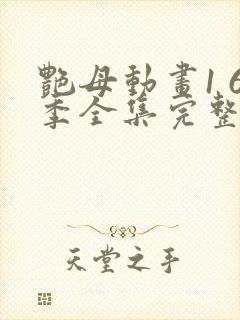 艷母動畫1 6
季全集完整
天堂之手